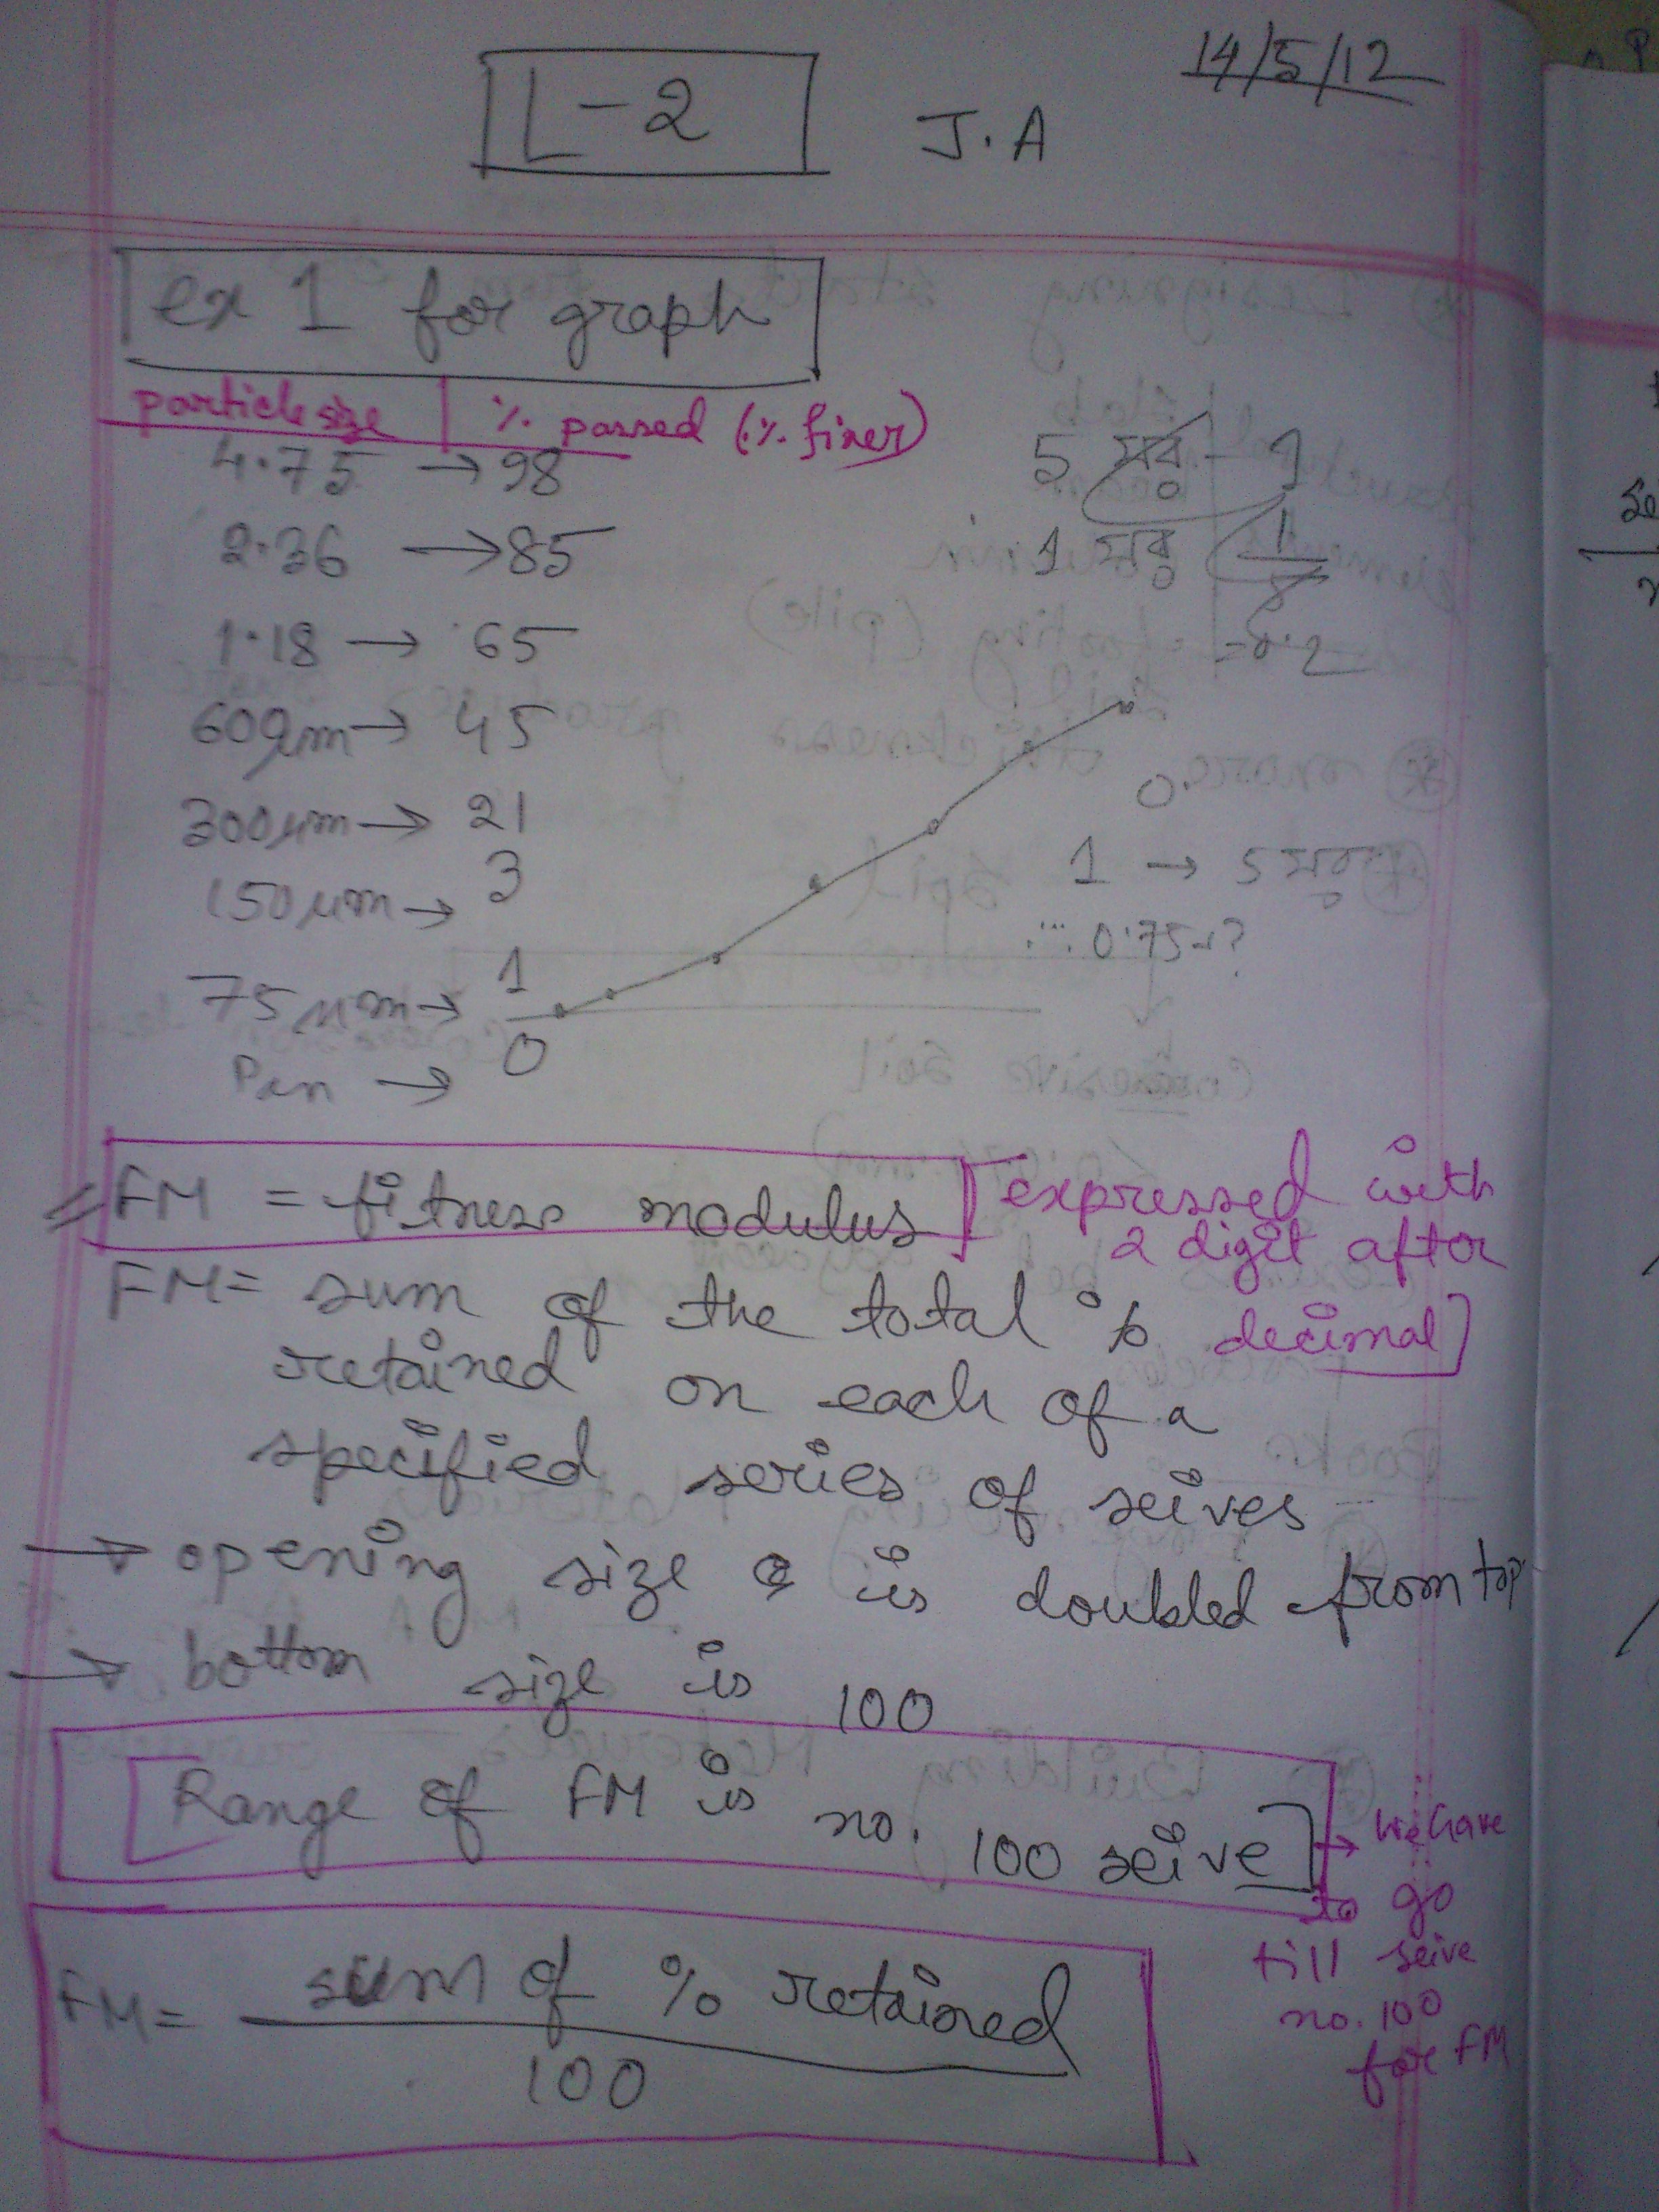 14/5/12
L-2
J.A
ex 1 for graph
particle size | % passed (% finer)
4.75 → 98
2.36 → 85
1.18 → 65
600μm → 45
300μm → 21
150μm → 3
75μm → 1
Pan → 0
5 ঘর - 1
1 ঘর
= 0.2
0.
1 → 5 ঘর
∴ 0.75 → ?
FM = fitness modulus [expressed with
2 digit after
decimal]
FM = sum of the total %
retained on each of a
specified series of seives
→ opening size is doubled from top
→ bottom size is 100
[Range of FM is no. 100 seive] → We have
to go
till seive
no. 100
for FM
FM = sum of % retained
100